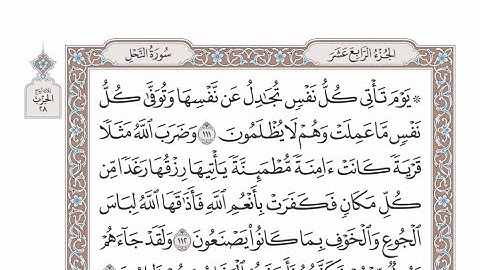 سُورَةُ النَّحْلِ
الجُزْءُ الرَّابِعَ عَشَرَ
الحِزْب
٢٨
۞ يَوْمَ تَأْتِي كُلُّ نَفْسٍ تُجَٰدِلُ عَن نَّفْسِهَا وَتُوَفَّىٰ كُلُّ
نَفْسٍ مَّا عَمِلَتْ وَهُمْ لَا يُظْلَمُونَ ١١١ وَضَرَبَ ٱللَّهُ مَثَلًا
قَرْيَةً كَانَتْ ءَامِنَةً مُّطْمَئِنَّةً يَأْتِيهَا رِزْقُهَا رَغَدًا مِّن
كُلِّ مَكَانٍ فَكَفَرَتْ بِأَنْعُمِ ٱللَّهِ فَأَذَٰقَهَا ٱللَّهُ لِبَاسَ
ٱلْجُوعِ وَٱلْخَوْفِ بِمَا كَانُوا۟ يَصْنَعُونَ ١١٢ وَلَقَدْ جَآءَهُمْ